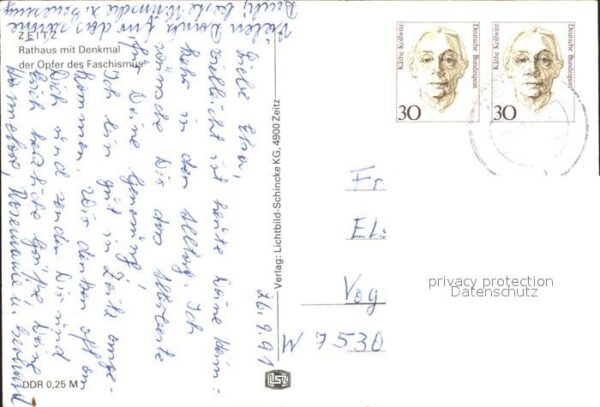 ZEITZ
Rathaus mit Denkmal
der Opfer des Faschismus
Vielen Dank für das
Liebe Elsa,
vielleicht ist heute Deine Heim-
kehr in den Alltag. Ich
wünsche Dir das Allerbeste
für Deine Genesung!
Ich bin gut in Zeitz ange-
kommen. Wir denken oft an
Dich und senden Dir und
Euch herzliche Grüße Deine
Rosemarie u.
26.9.91
Verlag: Lichtbild-Schincke KG, 4900 Zeitz
DDR 0,25 M
Käthe Kollwitz
Deutsche Bundespost
30
Käthe Kollwitz
Deutsche Bundespost
30
Fr
El.
Vog
W 7530
privacy protection
Datenschutz